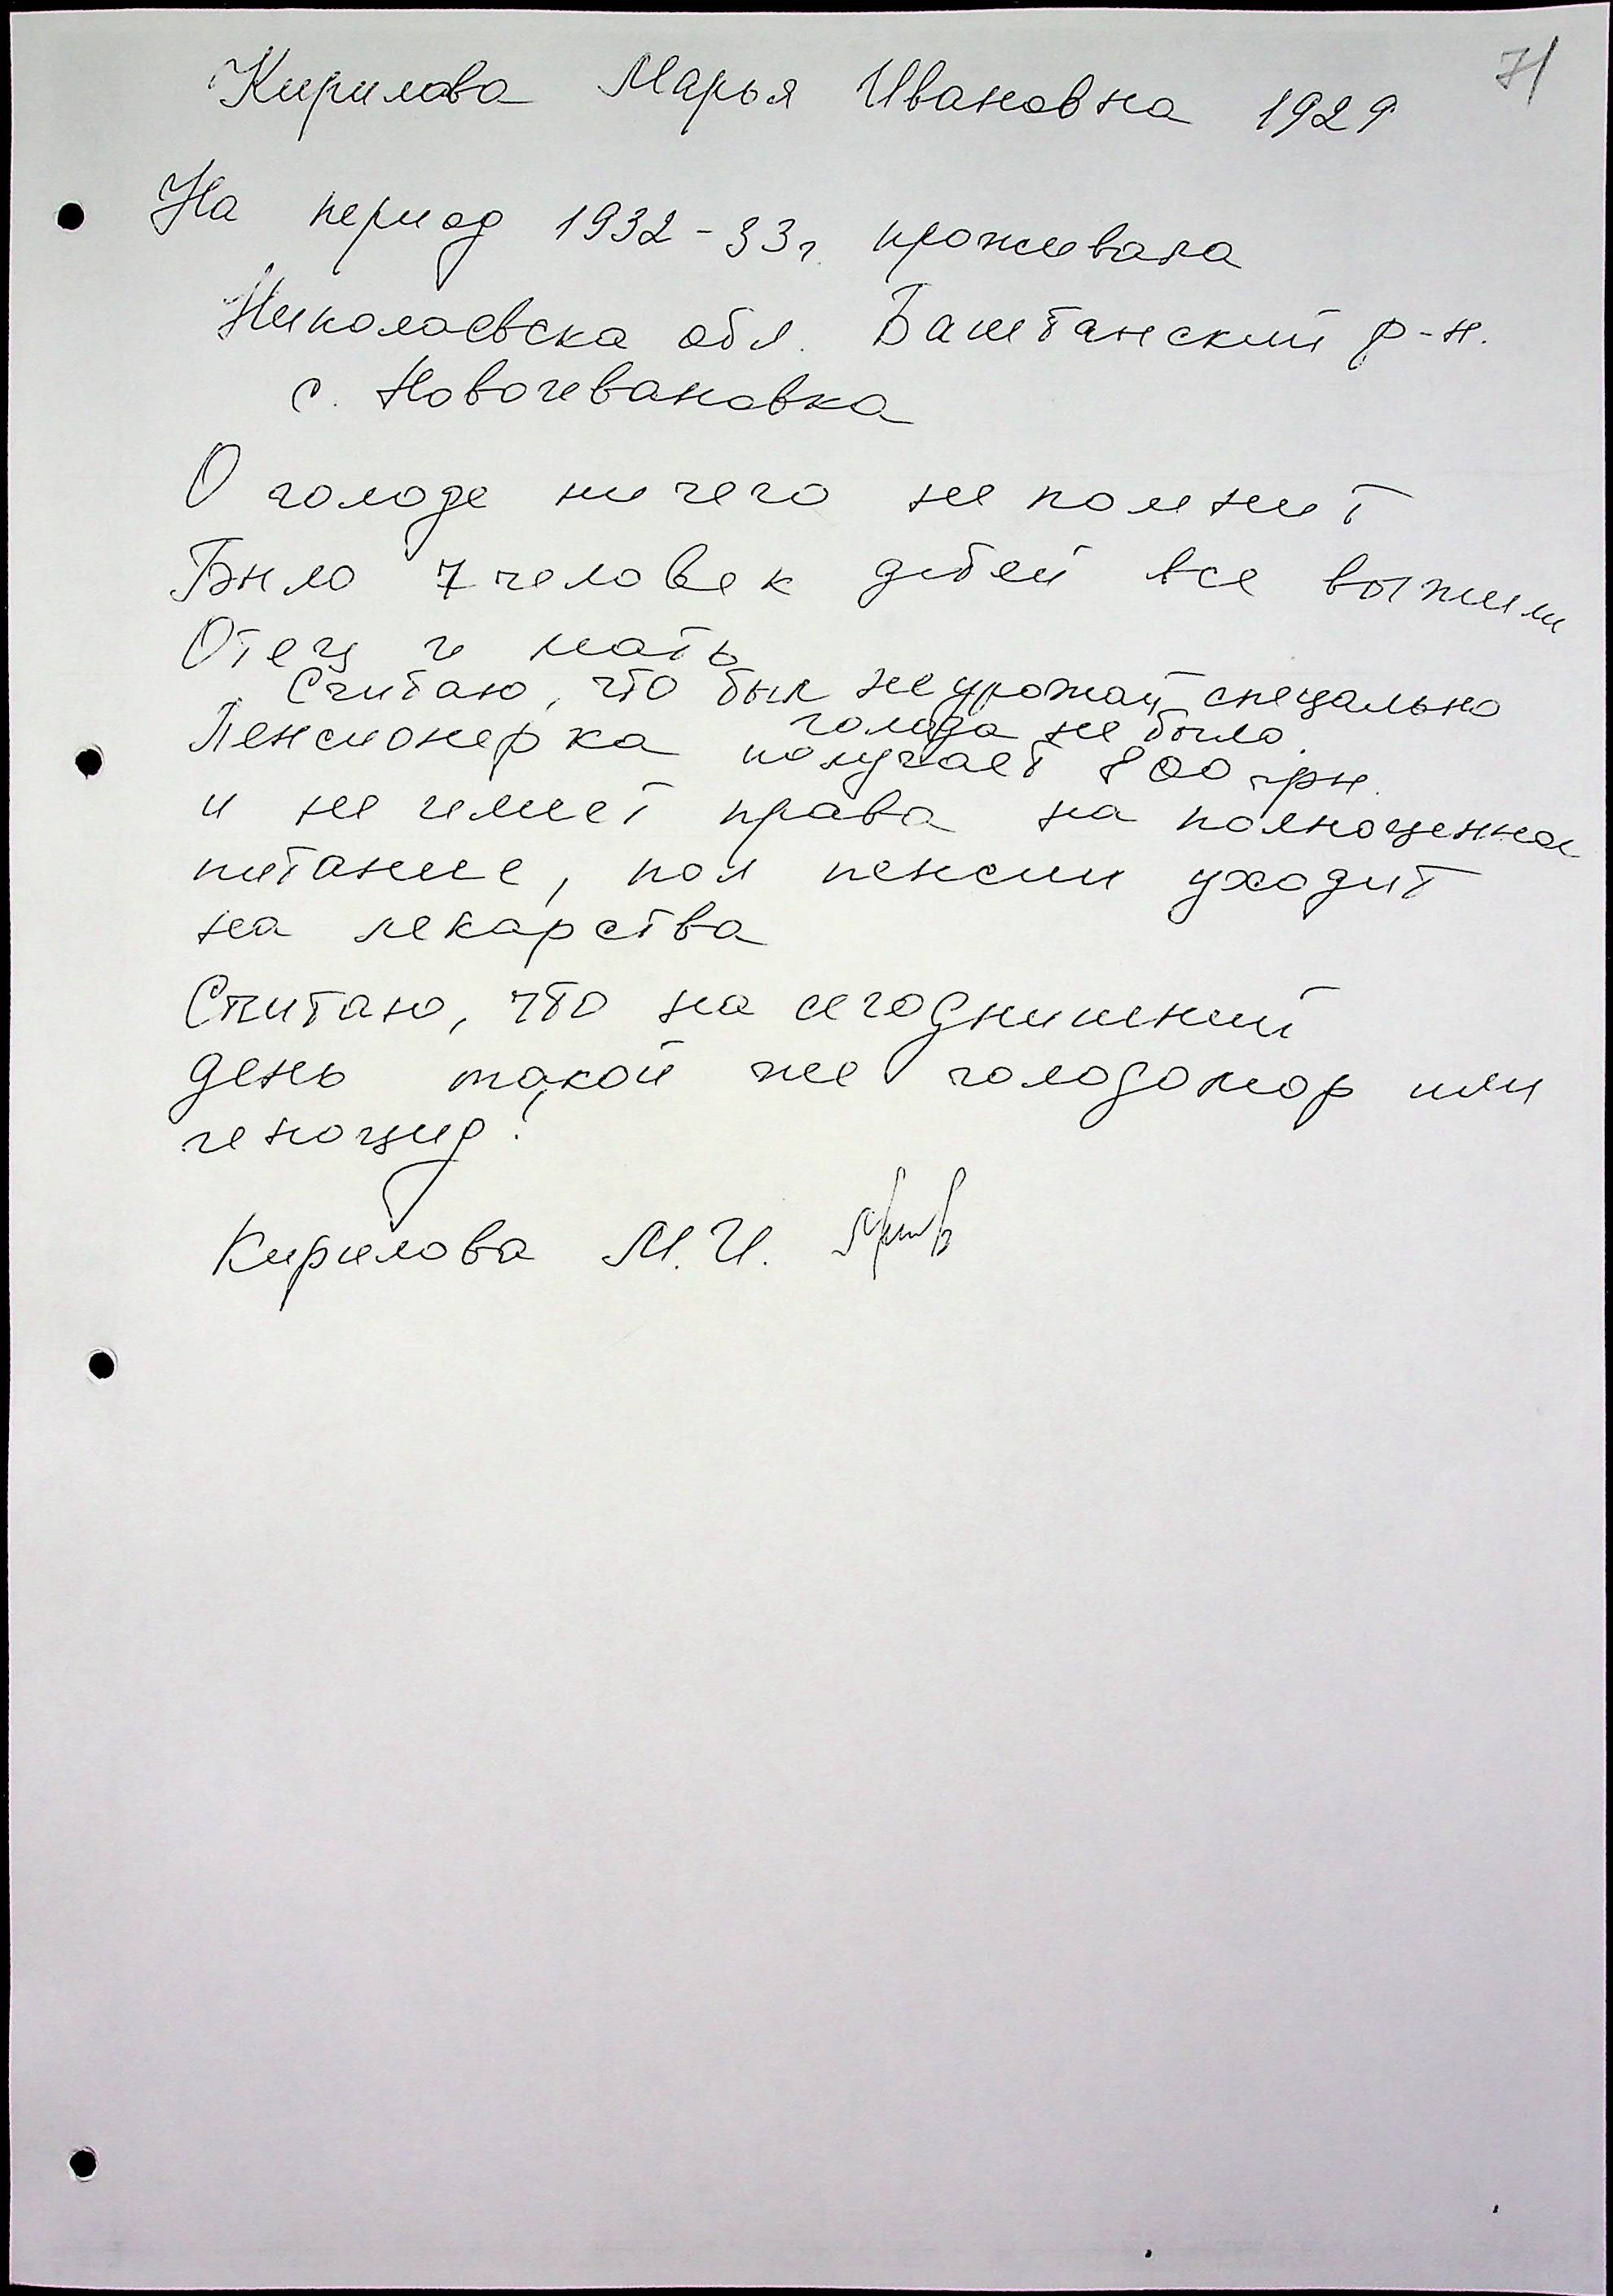 71
Кирилова Марья Ивановна 1929
На период 1932-33г. проживала
Николаевска обл. Баштанский р-н.
с. Новоивановка
О голоде ничего не помнит
Было 7 человек дитей все выжили
Отец и мать
Считаю, что был не урожай, специально
голода не было.
Пенсионерка получает 800 грн.
и не имеет права на полноценное
питание, пол пенсии уходит
на лекарства
Считаю, что на сегоднишний
день такой же голодомор или
геноцид!
Кирилова М.И.